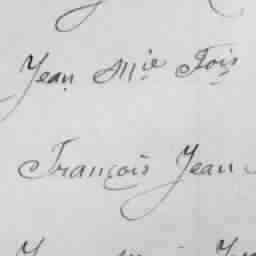 Jean Mie Fois
François Jean